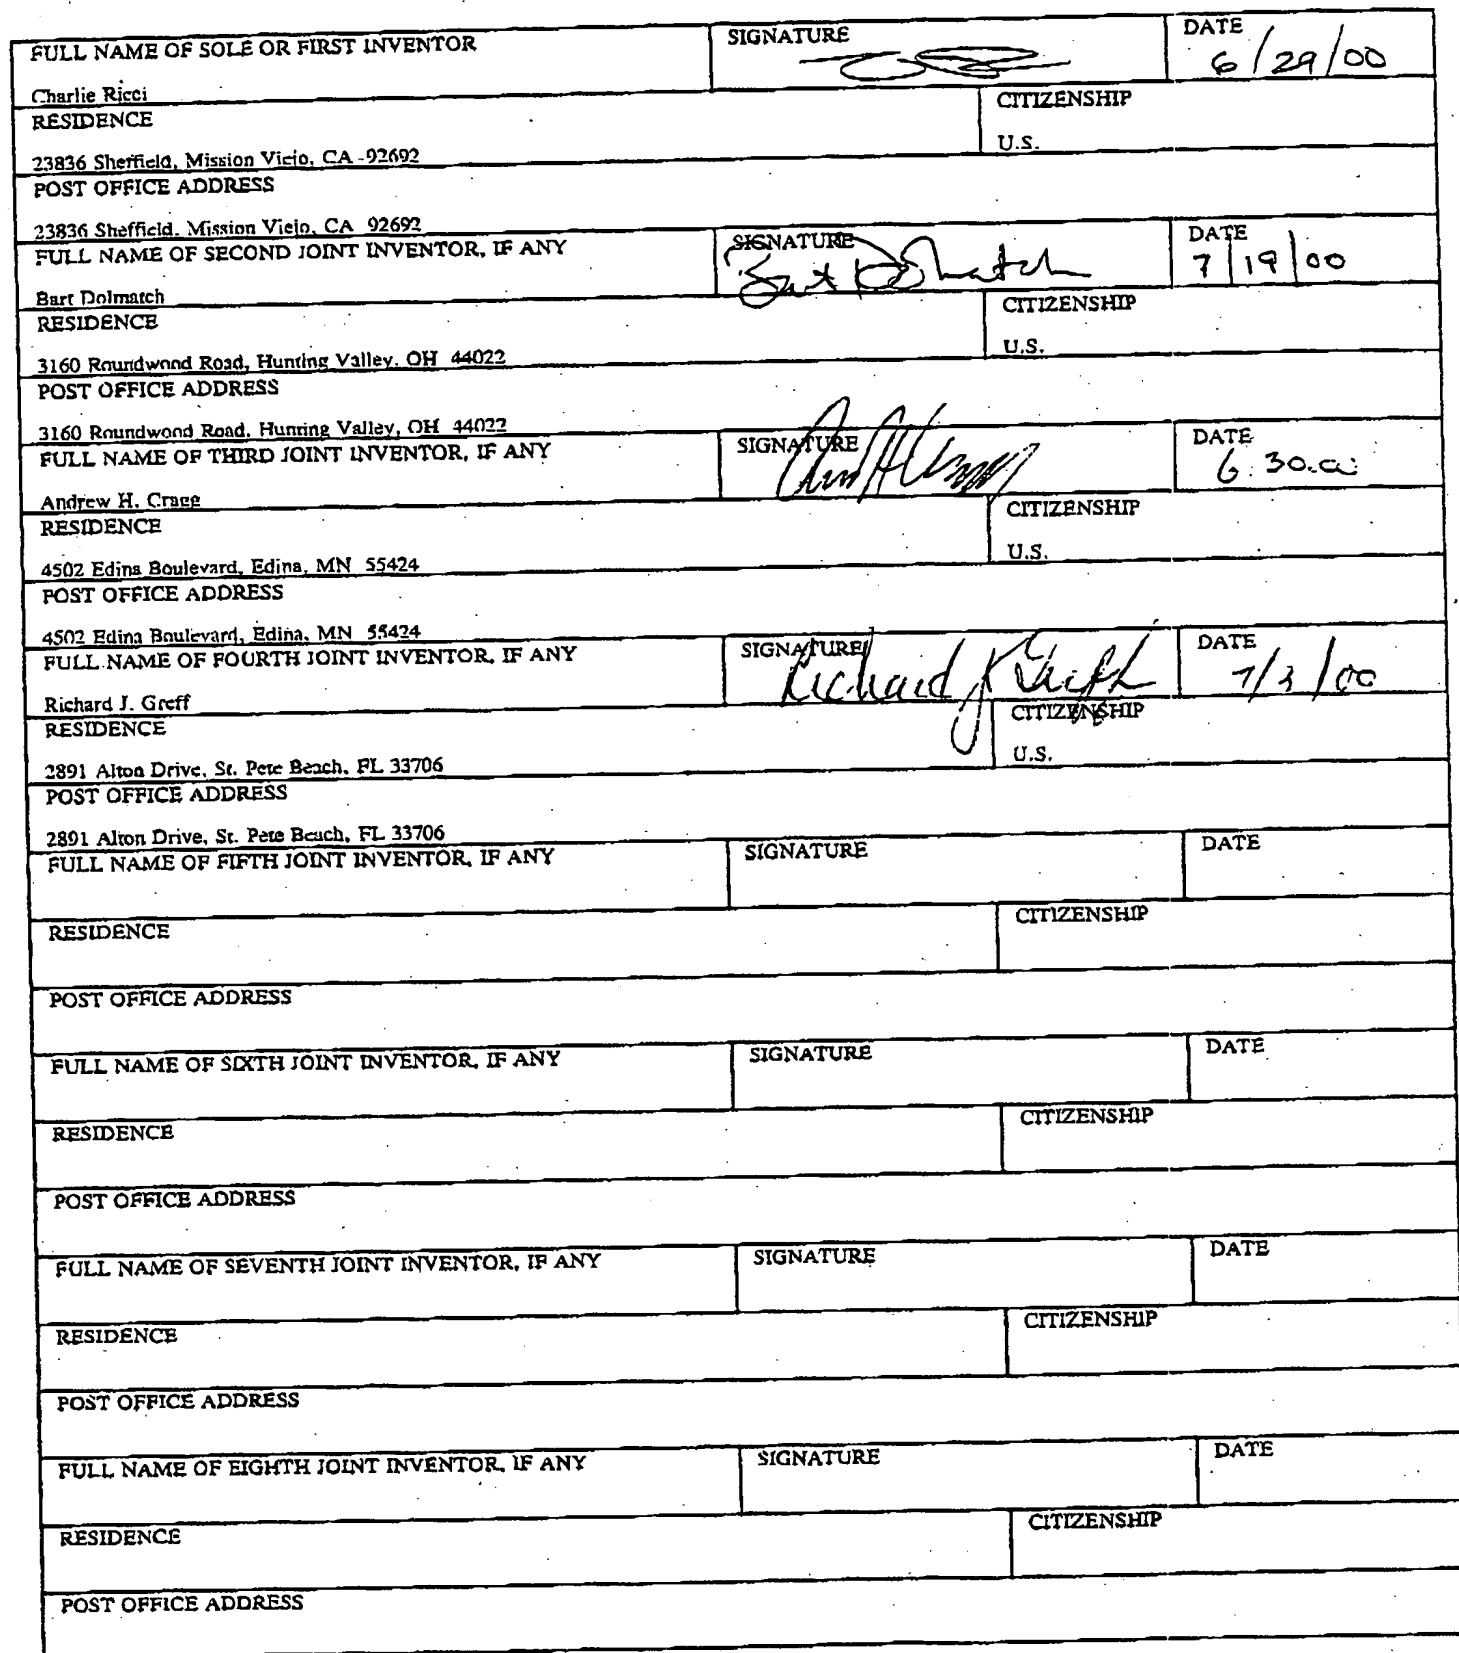 FULL NAME OF SOLE OR FIRST INVENTOR SIGNATURE DATE
6/29/00
Charlie Ricci
RESIDENCE CITIZENSHIP
23836 Sheffield, Mission Viejo, CA 92692 U.S.
POST OFFICE ADDRESS
23836 Sheffield, Mission Viejo, CA 92692
FULL NAME OF SECOND JOINT INVENTOR, IF ANY SIGNATURE DATE
Bart Dolmatch 7/19/00
Bart Dolmatch
RESIDENCE CITIZENSHIP
3160 Roundwood Road, Hunting Valley, OH 44022 U.S.
POST OFFICE ADDRESS
3160 Roundwood Road, Hunting Valley, OH 44022
FULL NAME OF THIRD JOINT INVENTOR, IF ANY SIGNATURE DATE
6.30.
Andrew H. Cragg
RESIDENCE CITIZENSHIP
4502 Edina Boulevard, Edina, MN 55424 U.S.
POST OFFICE ADDRESS
4502 Edina Boulevard, Edina, MN 55424
FULL NAME OF FOURTH JOINT INVENTOR, IF ANY SIGNATURE DATE
Richard J Greff 7/3/00
Richard J. Greff
RESIDENCE CITIZENSHIP
2891 Alton Drive, St. Pete Beach, FL 33706 U.S.
POST OFFICE ADDRESS
2891 Alton Drive, St. Pete Beach, FL 33706
FULL NAME OF FIFTH JOINT INVENTOR, IF ANY SIGNATURE DATE
RESIDENCE CITIZENSHIP
POST OFFICE ADDRESS
FULL NAME OF SIXTH JOINT INVENTOR, IF ANY SIGNATURE DATE
RESIDENCE CITIZENSHIP
POST OFFICE ADDRESS
FULL NAME OF SEVENTH JOINT INVENTOR, IF ANY SIGNATURE DATE
RESIDENCE CITIZENSHIP
POST OFFICE ADDRESS
FULL NAME OF EIGHTH JOINT INVENTOR, IF ANY SIGNATURE DATE
RESIDENCE CITIZENSHIP
POST OFFICE ADDRESS